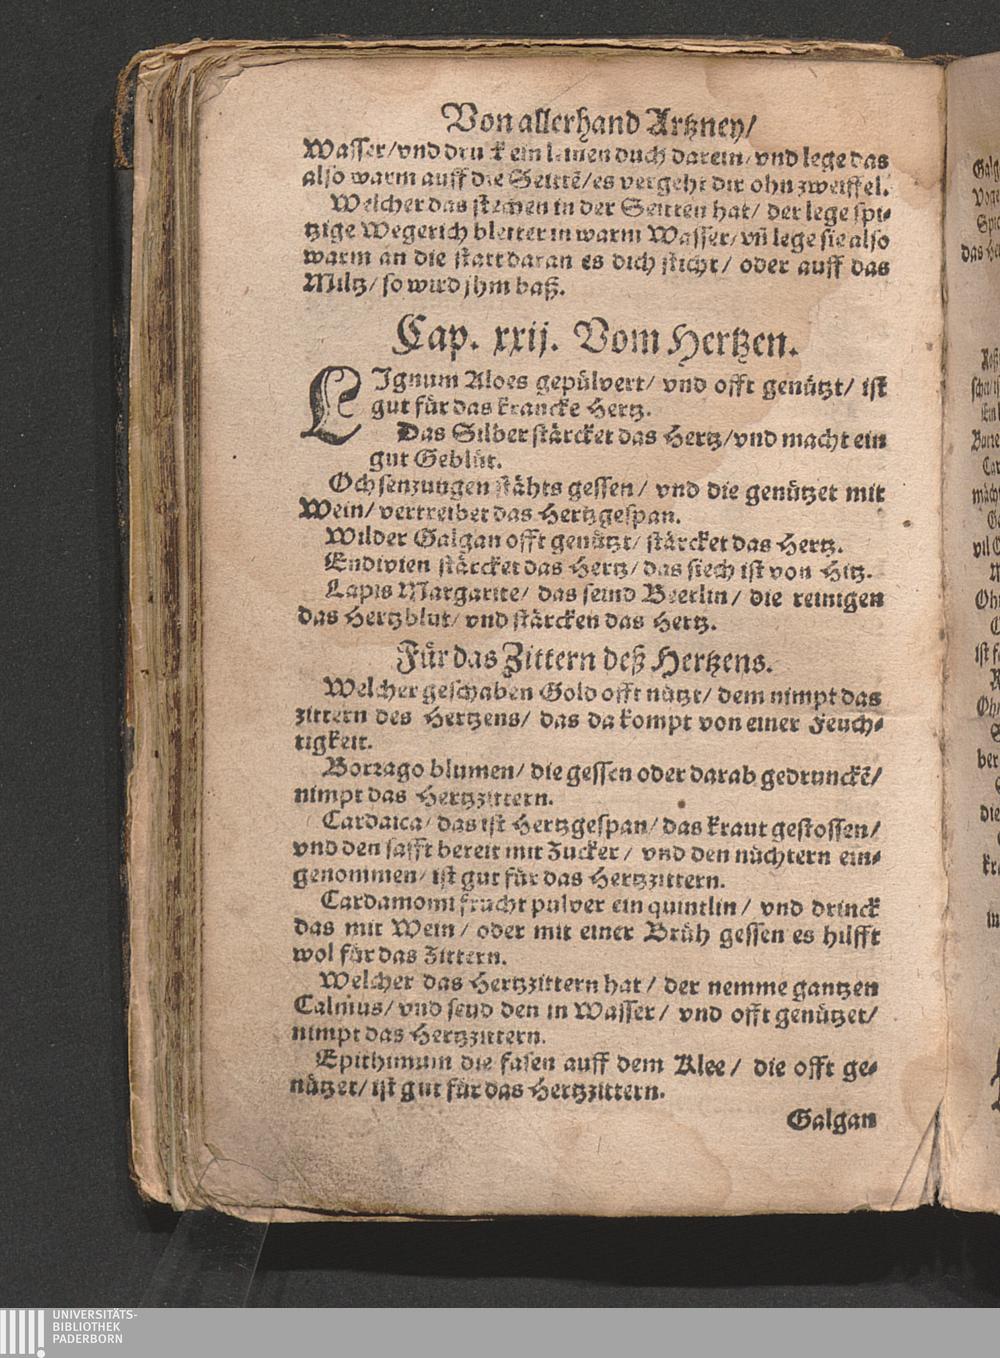 Von allerhand Artzney/
Wasser/vnd druck ein leinen duch darein/vnd lege das
also warm auff die Seittẽ/es vergeht dir ohn zweiffel.
Welcher das stechen in der Seitten hat/ der lege spi-
tzige Wegerich bletter in warm Wasser/vñ lege sie also
warm an die statt daran es dich sticht/ oder auff das
Miltz/so wird jhm baß.
Cap. xxij. Vom Hertzen.
LIgnum Aloes gepülvert/ vnd offt genützt/ ist
gut für das krancke Hertz.
Das Silber stärcket das Hertz/vnd macht ein
gut Geblüt.
Ochsenzungen stähts gessen/ vnd die genützet mit
Wein/ vertreibet das Hertzgespan.
Wilder Galgan offt genützt/ stärcket das Hertz.
Endivien stärcket das Hertz/ das siech ist von Hitz.
Lapis Margarite/ das seind Beerlin/ die reinigen
das Hertzblut/ vnd stärcken das Hertz.
Für das Zittern deß Hertzens.
Welcher geschaben Gold offt nützt/ dem nimpt das
zittern des Hertzens/ das da kompt von einer Feuch-
tigkeit.
Borrago blumen/ die gessen oder darab gedrunckẽ/
nimpt das Hertzzittern.
Cardaica/ das ist Hertzgespan/ das kraut gestossen/
vnd den safft bereit mit Zucker/ vnd den nüchtern ein-
genommen/ ist gut für das Hertzzittern.
Cardamomi frucht pulver ein quintlin/ vnd drinck
das mit Wein/ oder mit einer Brüh gessen es hilfft
wol für das Zittern.
Welcher das Hertzzittern hat/ der nemme gantzen
Calmus/vnd seud den in Wasser/ vnd offt genützet/
nimpt das Hertzzittern.
Epithimum die fasen auff dem Klee/ die offt ge-
nützet/ist gut für das Hertzzittern.
Galgan
UNIVERSITÄTS-
BIBLIOTHEK
PADERBORN